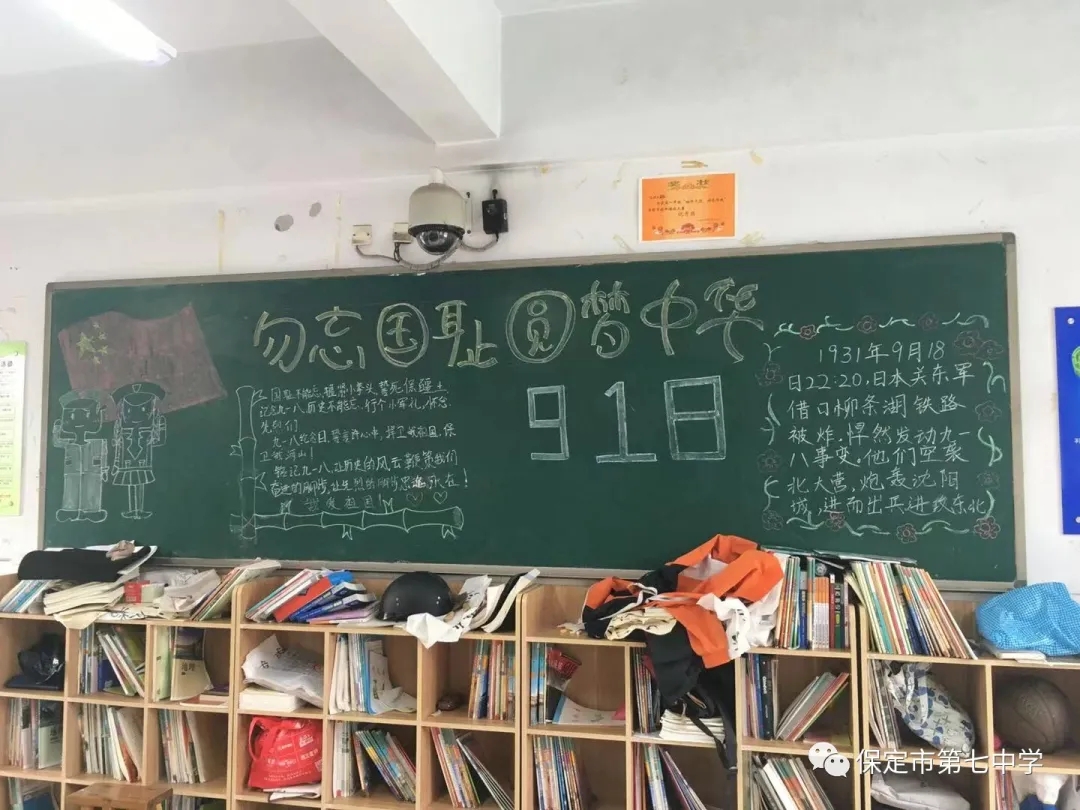 奖状
勿忘国耻圆梦中华
国耻不能忘,握紧小拳头,誓死保疆土
记念九一八,历史不能忘,行个小军礼,怀念
先列们
九一八纪念日,警音许心中,捍卫我祖国,保
卫我河山!
铭记九一八,让历史的风云鞭策我们
奋进的脚步
我爱祖国
918
1931年9月18
日22:20,日本关东军
借口柳条湖铁路
被炸,悍然发动九一
八事变,他们突袭
北大营,炮轰沈阳
城,进而出兵进攻东北
保定市第七中学